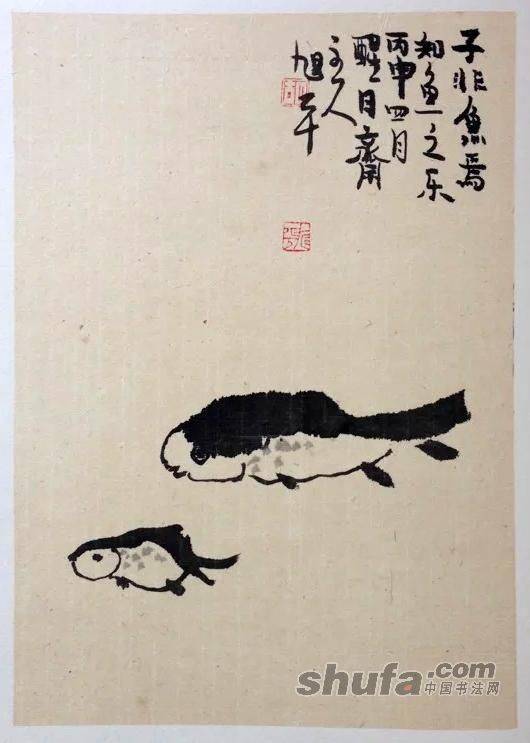 子非鱼焉
知鱼之乐
丙申四月
醒日斋
主人
旭午
shufa.com
中国书法网